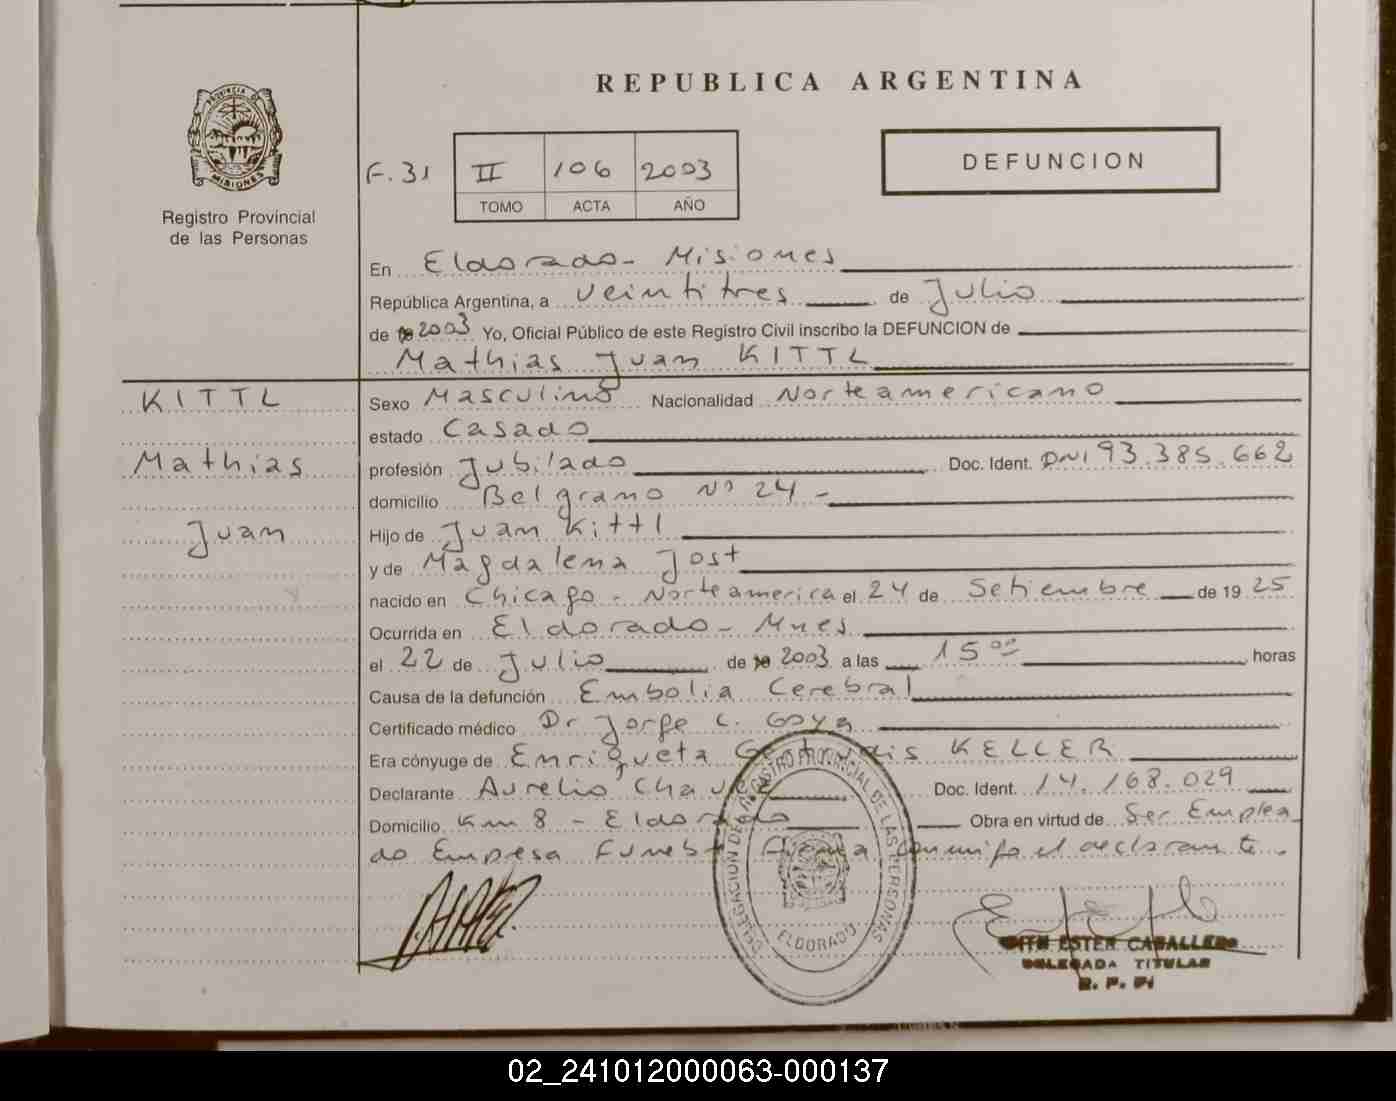 PROVINCIA DE
MISIONES
Registro Provincial
de las Personas
REPUBLICA ARGENTINA
F. 31 II 106 2003
TOMO ACTA AÑO
DEFUNCION
En Eldorado - Misiones
República Argentina, a veintitres de Julio
de 2003 Yo, Oficial Público de este Registro Civil inscribo la DEFUNCION de
Mathias Juan KITTL
KITTL
Mathias
Juan
Sexo Masculino Nacionalidad Norteamericano
estado Casado
profesión Jubilado Doc. Ident. DNI 93.385.662
domicilio Belgrano Nº 24 -
Hijo de Juan Kittl
y de Magdalena Jost
nacido en Chicago - Norteamerica el 24 de Setiembre de 1925
Ocurrida en Eldorado - Mnes
el 22 de Julio de 2003 a las 15 00 horas
Causa de la defunción Embolia Cerebral
Certificado médico Dr Jorge C. Goya
Era cónyuge de Enriqueta Gertrudis KELLER
Declarante Aurelio Chavez Doc. Ident. 14.168.029
Domicilio Km 8 - Eldorado Obra en virtud de Ser Emplea
do Empresa Funebre Firma conmigo el declarante.
DELEGACION DEL REGISTRO PROVINCIAL DE LAS PERSONAS
ELDORADO
ESTER CABALLERO
DELEGADA TITULAR
R. P. P.
02_241012000063-000137